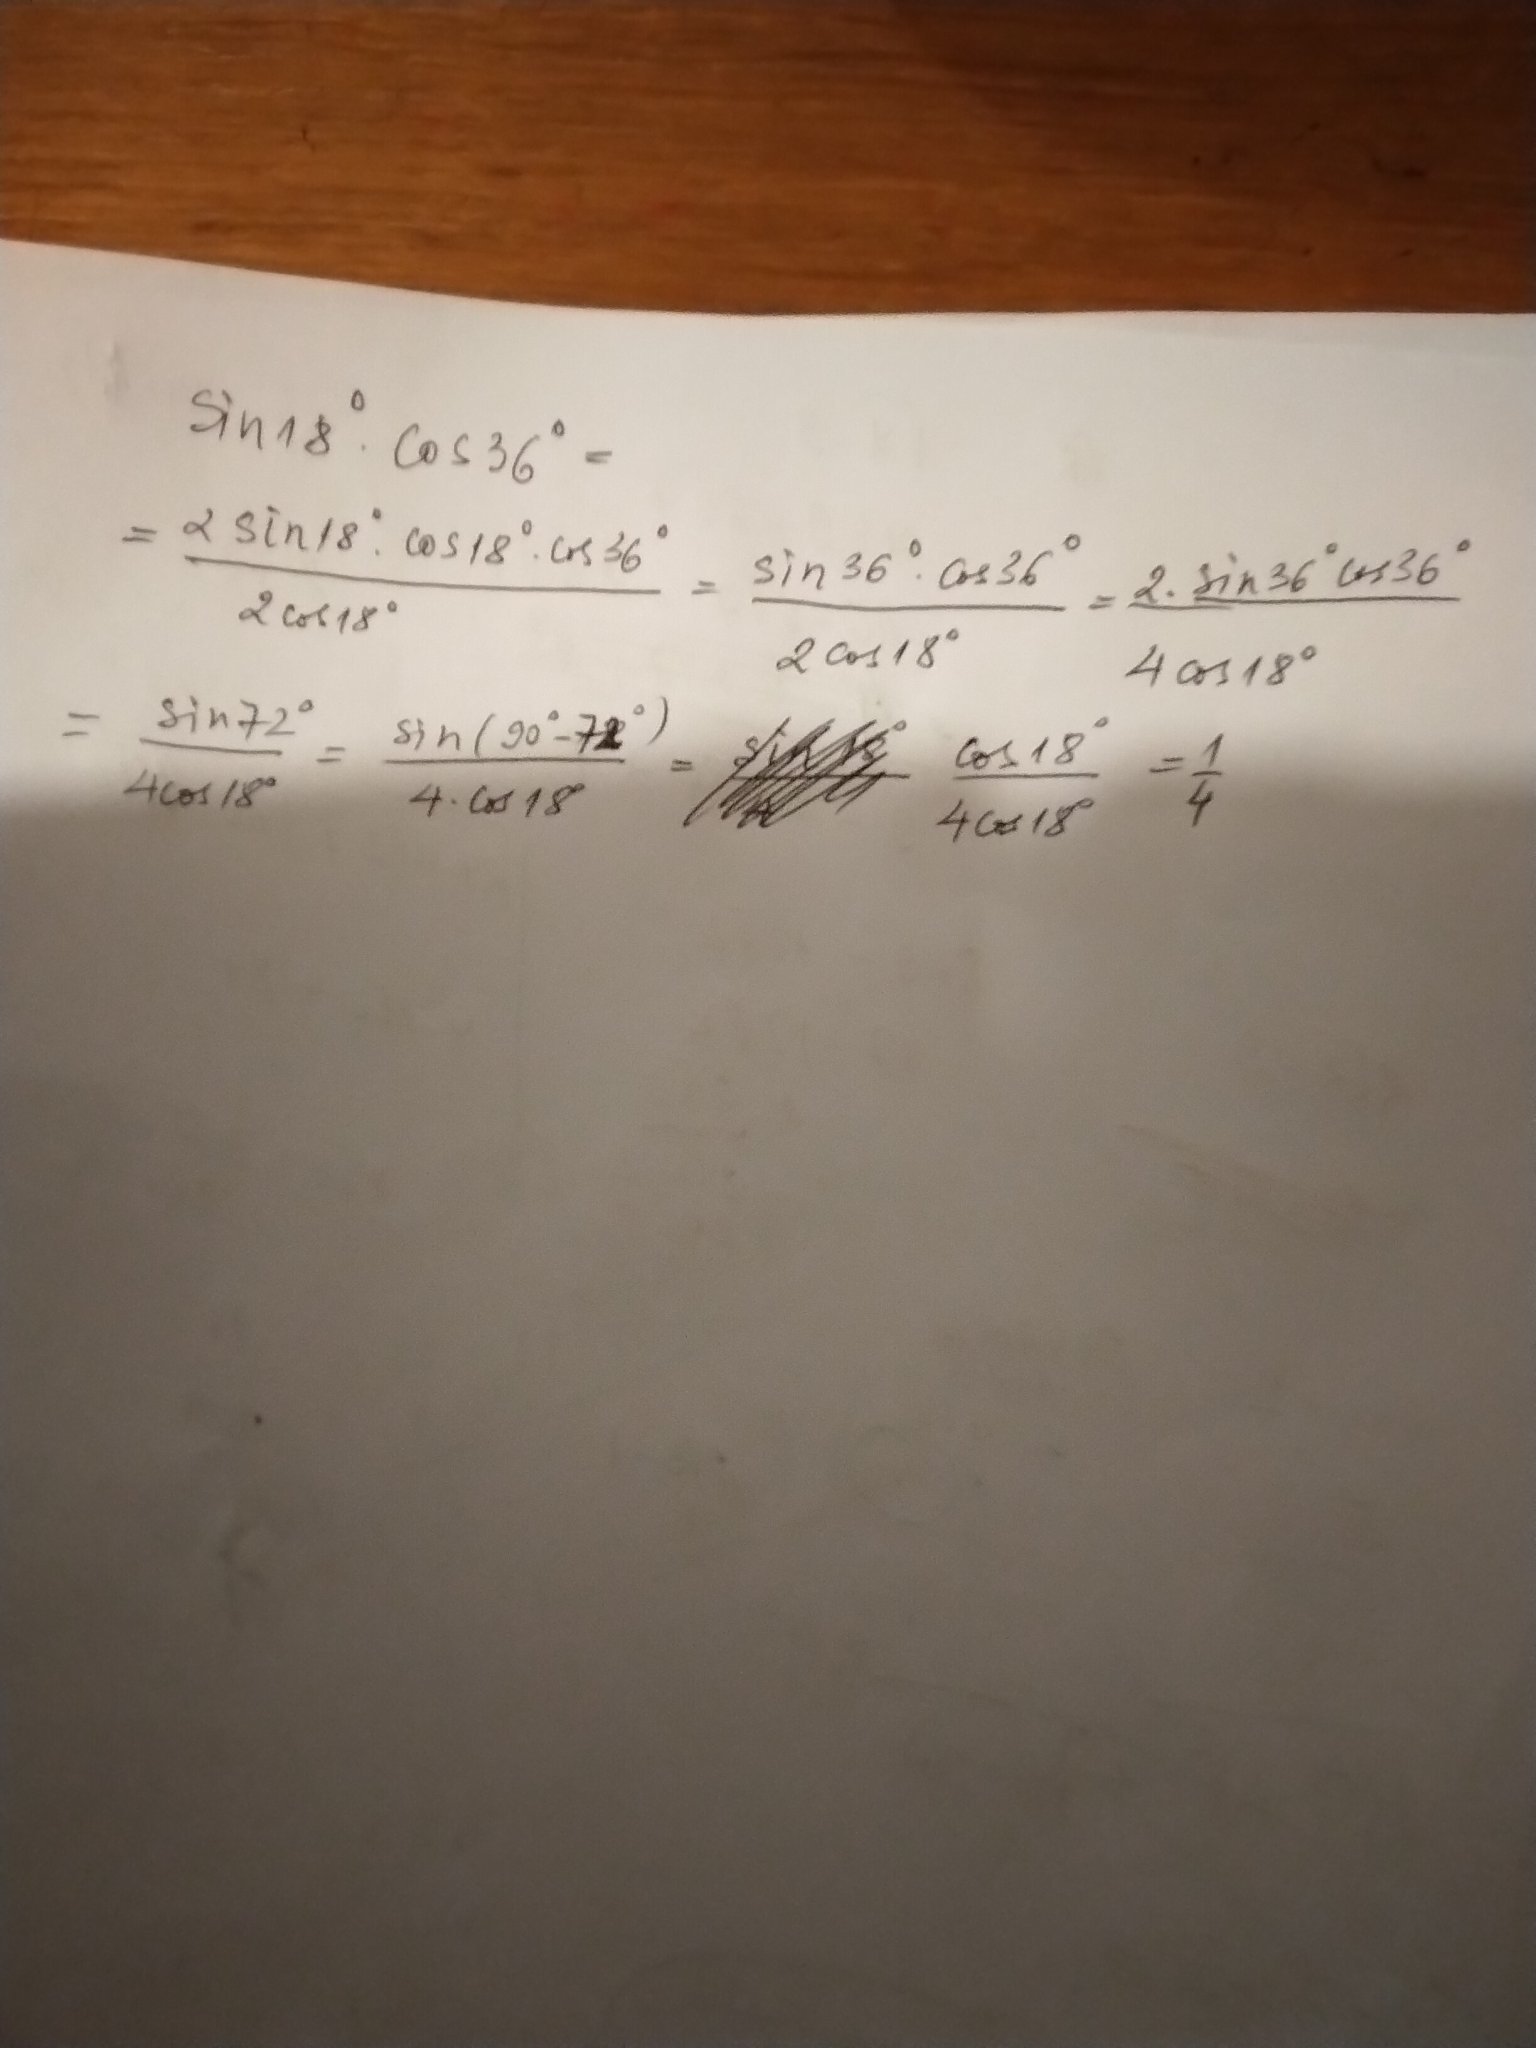 sin18°. cos36° =
= 2 sin18°. cos18°. cos36° / 2cos18° = sin36°. cos36° / 2cos18° = 2. sin36° cos36° / 4cos18°
= sin72° / 4cos18° = sin(90°-72°) / 4.cos18° = cos18° / 4cos18° = 1/4